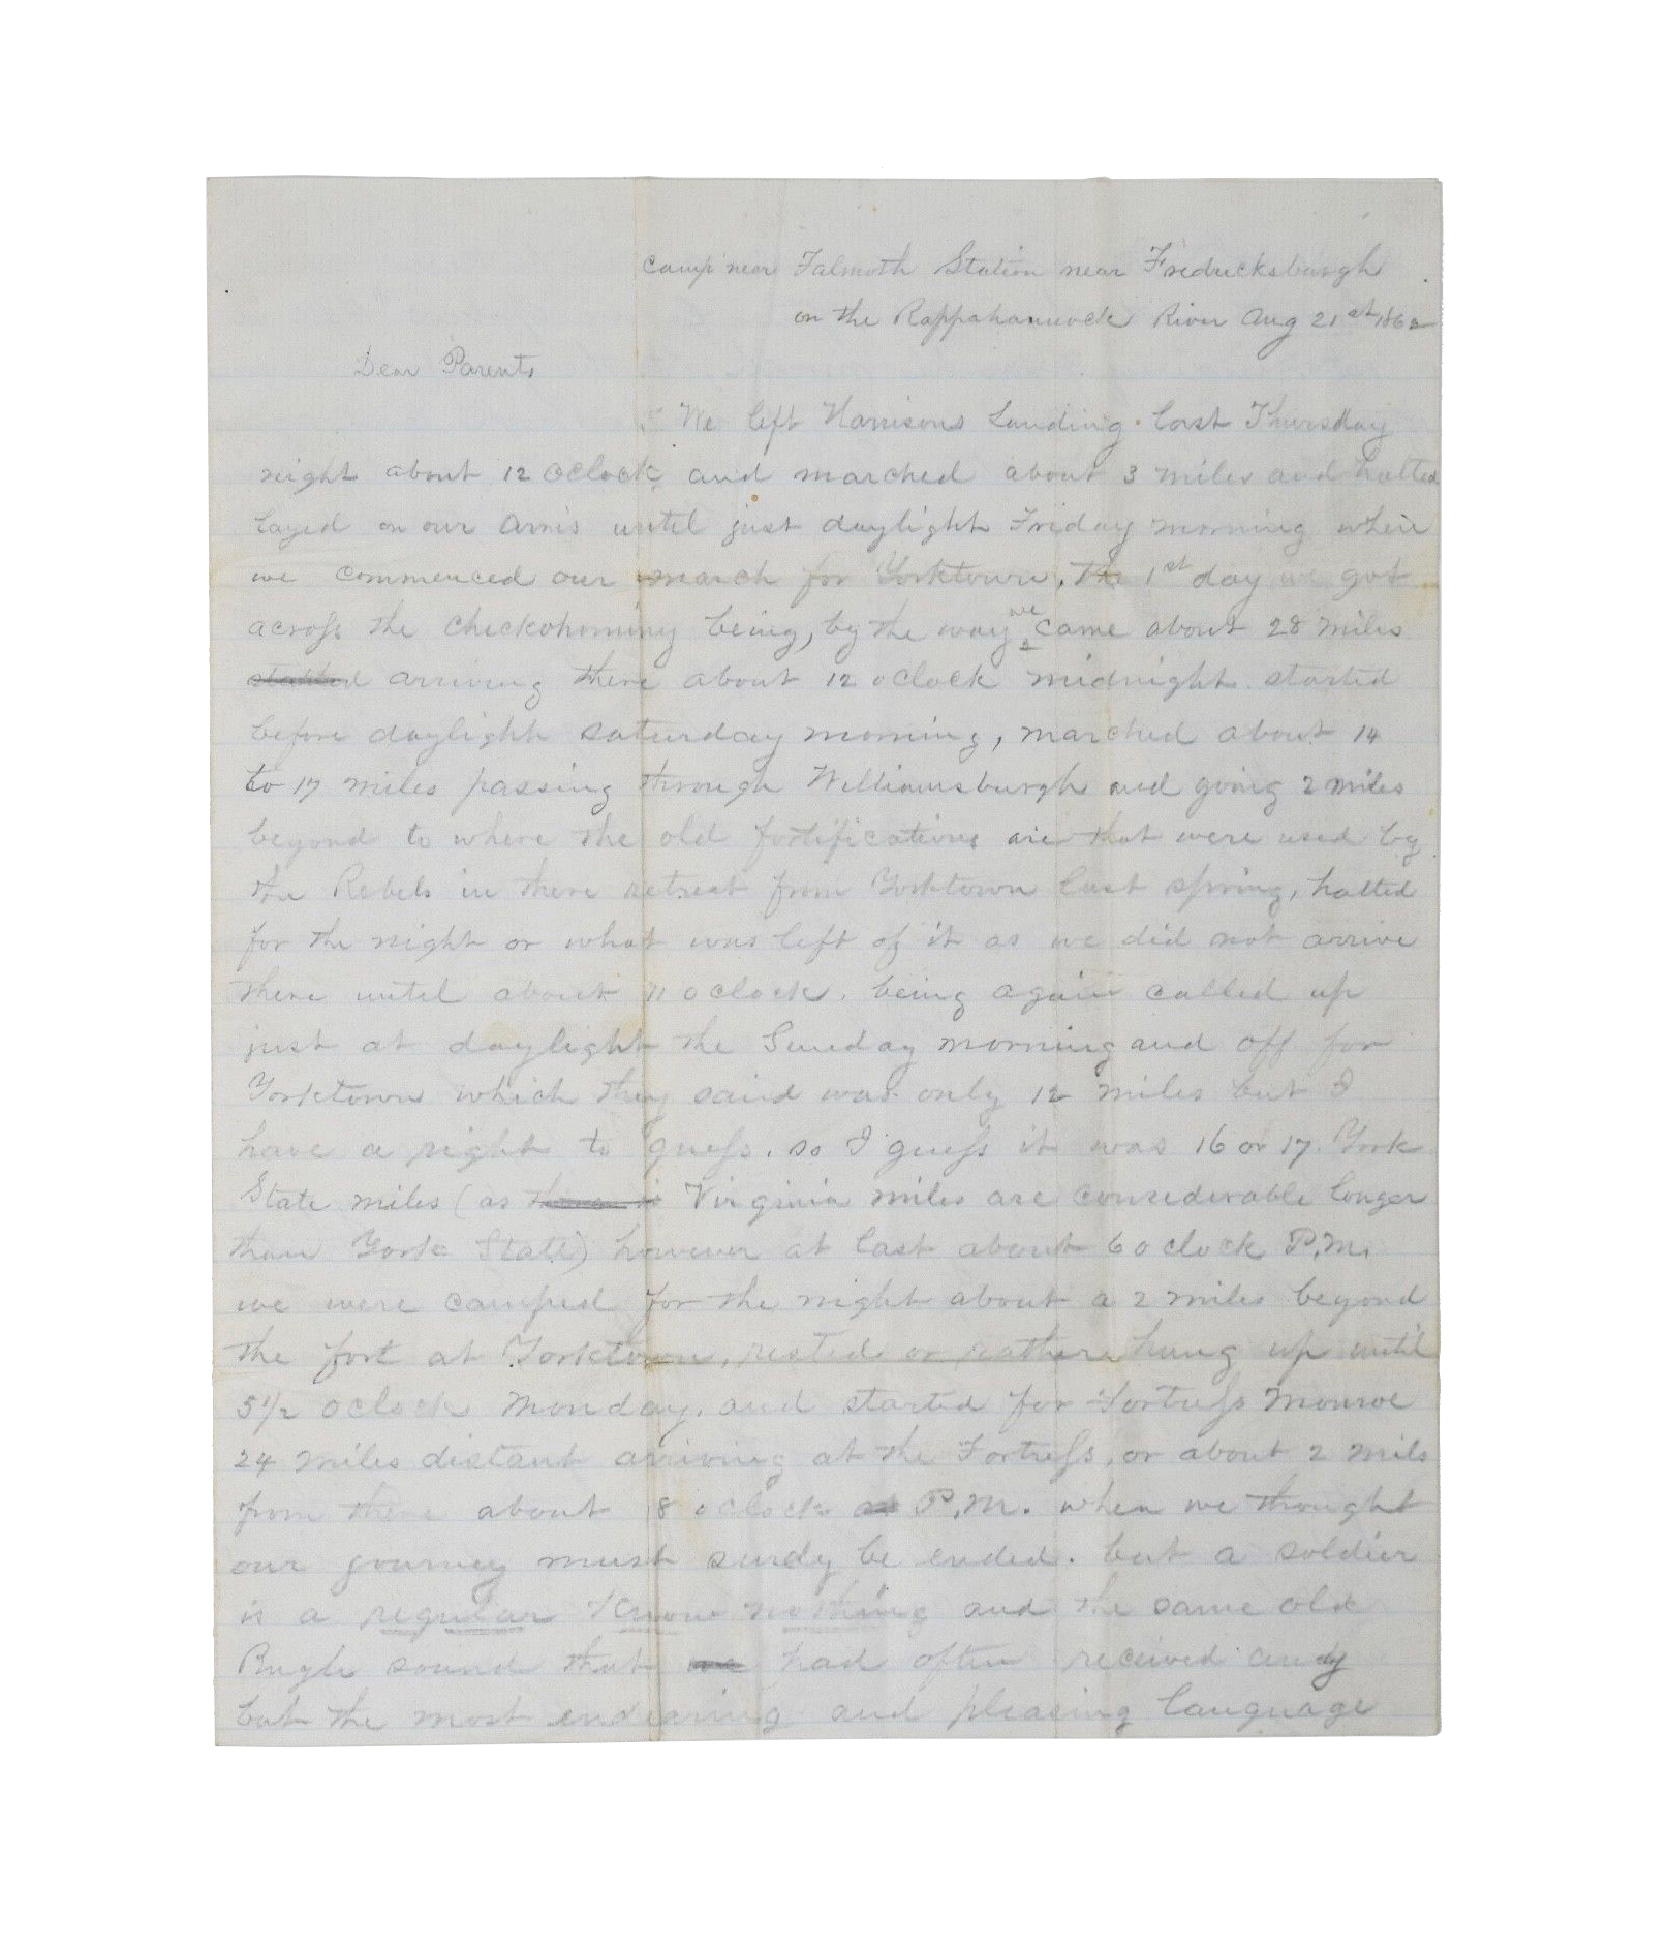 Camp near Falmoth Station near Fredricksburgh
on the Rappahannock River Aug 21st 1862
Dear Parents
We left Harrisons Landing last Thursday
night about 12 oclock and marched about 3 miles and halted
layed on our arms until just daylight Friday morning when
we commenced our march for Yorktown. The 1st day we got
across the Checkohominy being, by the way we came about 28 miles
arriving there about 12 oclock midnight started
before daylight Saturday morning, marched about 14
to 17 miles passing through Williamsburgh and going 2 miles
beyond to where the old fortifications are that were used by
the Rebels in there retreat from Yorktown last spring, halted
for the night or what was left of it as we did not arrive
there until about 11 oclock. being again called up
just at daylight the Sunday morning and off for
Yorktown which they said was only 12 miles but I
have a right to guess. so I guess it was 16 or 17 York
State miles (as Virginia miles are considerable longer
than York State) however at last about 6 oclock P.M.
we were camped for the night about a 2 miles beyond
the fort at Yorktown, rested or rather hung up until
5 1/2 oclock Monday. and started for Fortress Monroe
24 miles distant arriving at the Fortress, or about 2 mils
from there about 8 oclock P.M. when we thought
our journey must surely be ended. but a soldier
is a regular Know nothing and the same old
Bugle sound that had often received any
but the most endearing and pleasing language